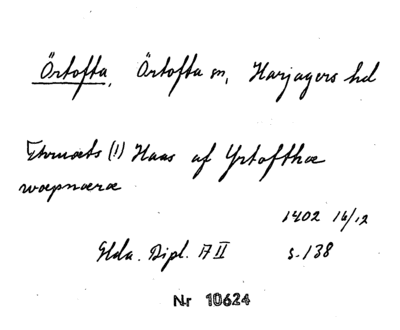 Örtofta, Örtofta sn, Harjagers hd
Thruots (!) Haas af Yrtofthæ
wæpnæræ
1402 16/12
Gda. Dipl. A II s. 138
Nr 10624